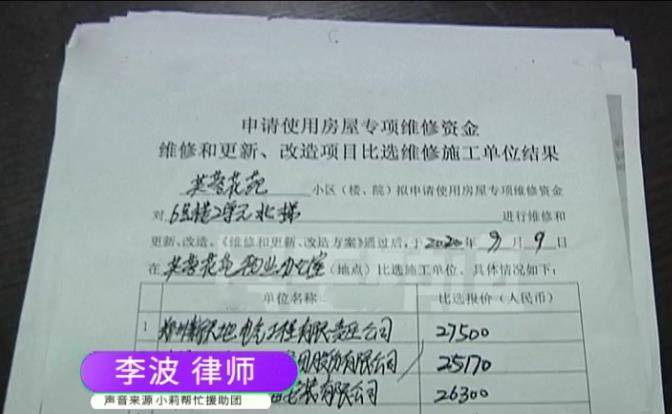 申请使用房屋专项维修资金
维修和更新、改造项目比选维修施工单位结果
芙蓉花苑 小区（楼、院）拟申请使用房屋专项维修资金
对 6号楼2单元北梯 进行维修和
更新、改造。《维修和更新、改造方案》通过后，于2020年9月9日
在 芙蓉花苑物业办公室（地点）比选施工单位、具体情况如下：
单位名称 比选报价（人民币）
1 郑州新天地电气工程有限责任公司 27500
股份有限公司 25170
有限公司 26300
李波 律师
声音来源 小莉帮忙援助团